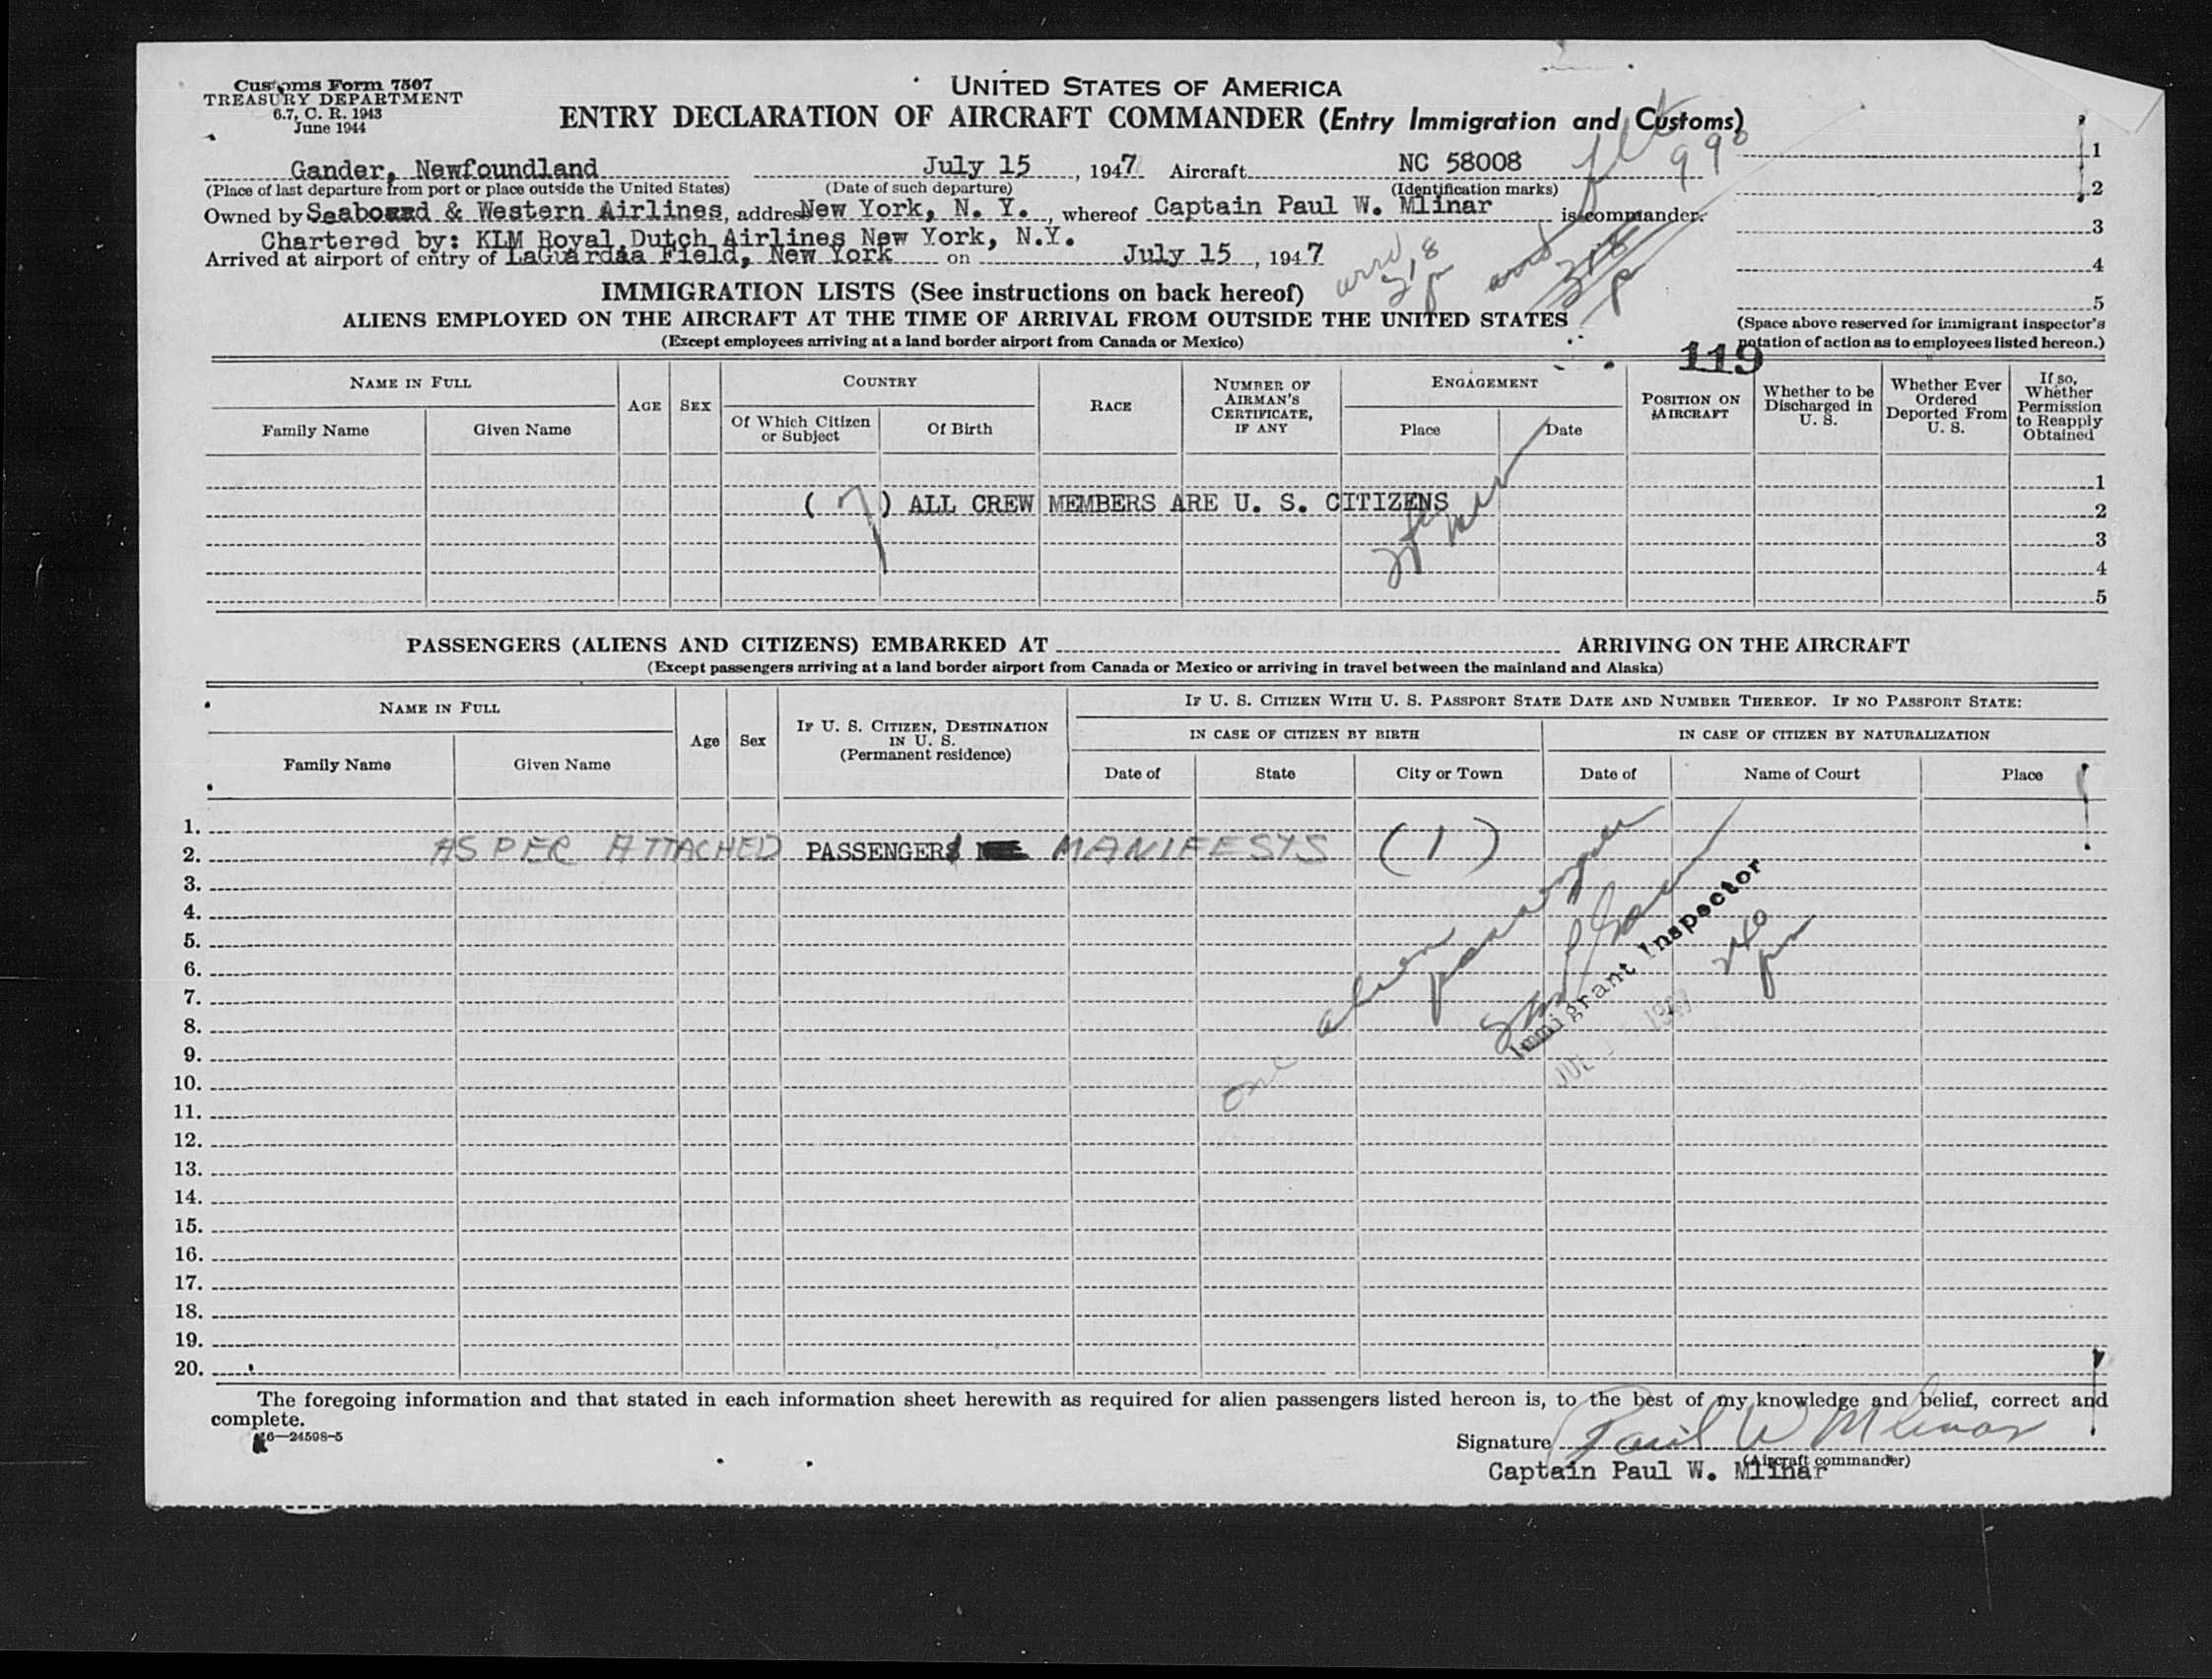 Customs Form 7507
TREASURY DEPARTMENT
6.7, C. R. 1943
June 1944
UNITED STATES OF AMERICA
ENTRY DECLARATION OF AIRCRAFT COMMANDER (Entry Immigration and Customs)
Gander, Newfoundland July 15, 1947 Aircraft NC 58008
(Place of last departure from port or place outside the United States) (Date of such departure) (Identification marks)
Owned by Seaboard & Western Airlines, address New York, N. Y., whereof Captain Paul W. Mlinar is commander.
Chartered by: KLM Royal Dutch Airlines New York, N.Y.
Arrived at airport of entry of LaGuardaa Field, New York on July 15, 1947
flt 990
arrd 218 p
arrd 218 p
1
2
3
4
5
(Space above reserved for immigrant inspector's notation of action as to employees listed hereon.)
IMMIGRATION LISTS (See instructions on back hereof)
ALIENS EMPLOYED ON THE AIRCRAFT AT THE TIME OF ARRIVAL FROM OUTSIDE THE UNITED STATES
(Except employees arriving at a land border airport from Canada or Mexico)
119
NAME IN FULL
Family Name Given Name
AGE SEX
COUNTRY
Of Which Citizen or Subject Of Birth
RACE
NUMBER OF AIRMAN'S CERTIFICATE, IF ANY
ENGAGEMENT
Place Date
POSITION ON AIRCRAFT
Whether to be Discharged in U. S.
Whether Ever Ordered Deported From U. S.
If so, Whether Permission to Reapply Obtained
1
( 7 ) ALL CREW MEMBERS ARE U. S. CITIZENS 2
3
4
5
PASSENGERS (ALIENS AND CITIZENS) EMBARKED AT ARRIVING ON THE AIRCRAFT
(Except passengers arriving at a land border airport from Canada or Mexico or arriving in travel between the mainland and Alaska)
NAME IN FULL
Family Name Given Name
Age Sex
IF U. S. CITIZEN, DESTINATION IN U. S.
(Permanent residence)
IF U. S. CITIZEN WITH U. S. PASSPORT STATE DATE AND NUMBER THEREOF. IF NO PASSPORT STATE:
IN CASE OF CITIZEN BY BIRTH IN CASE OF CITIZEN BY NATURALIZATION
Date of State City or Town Date of Name of Court Place
1.
2. AS PER ATTACHED PASSENGER MANIFESYS (1)
3.
4.
5.
6.
7.
8.
9.
10.
11.
12.
13.
14.
15.
16.
17.
18.
19.
20.
one alien passenger
Immigrant Inspector
240 pm
JUL 1947
The foregoing information and that stated in each information sheet herewith as required for alien passengers listed hereon is, to the best of my knowledge and belief, correct and
complete.
16—24598-5
Signature Paul W Mlinar
(Aircraft commander)
Captain Paul W. Mlinar